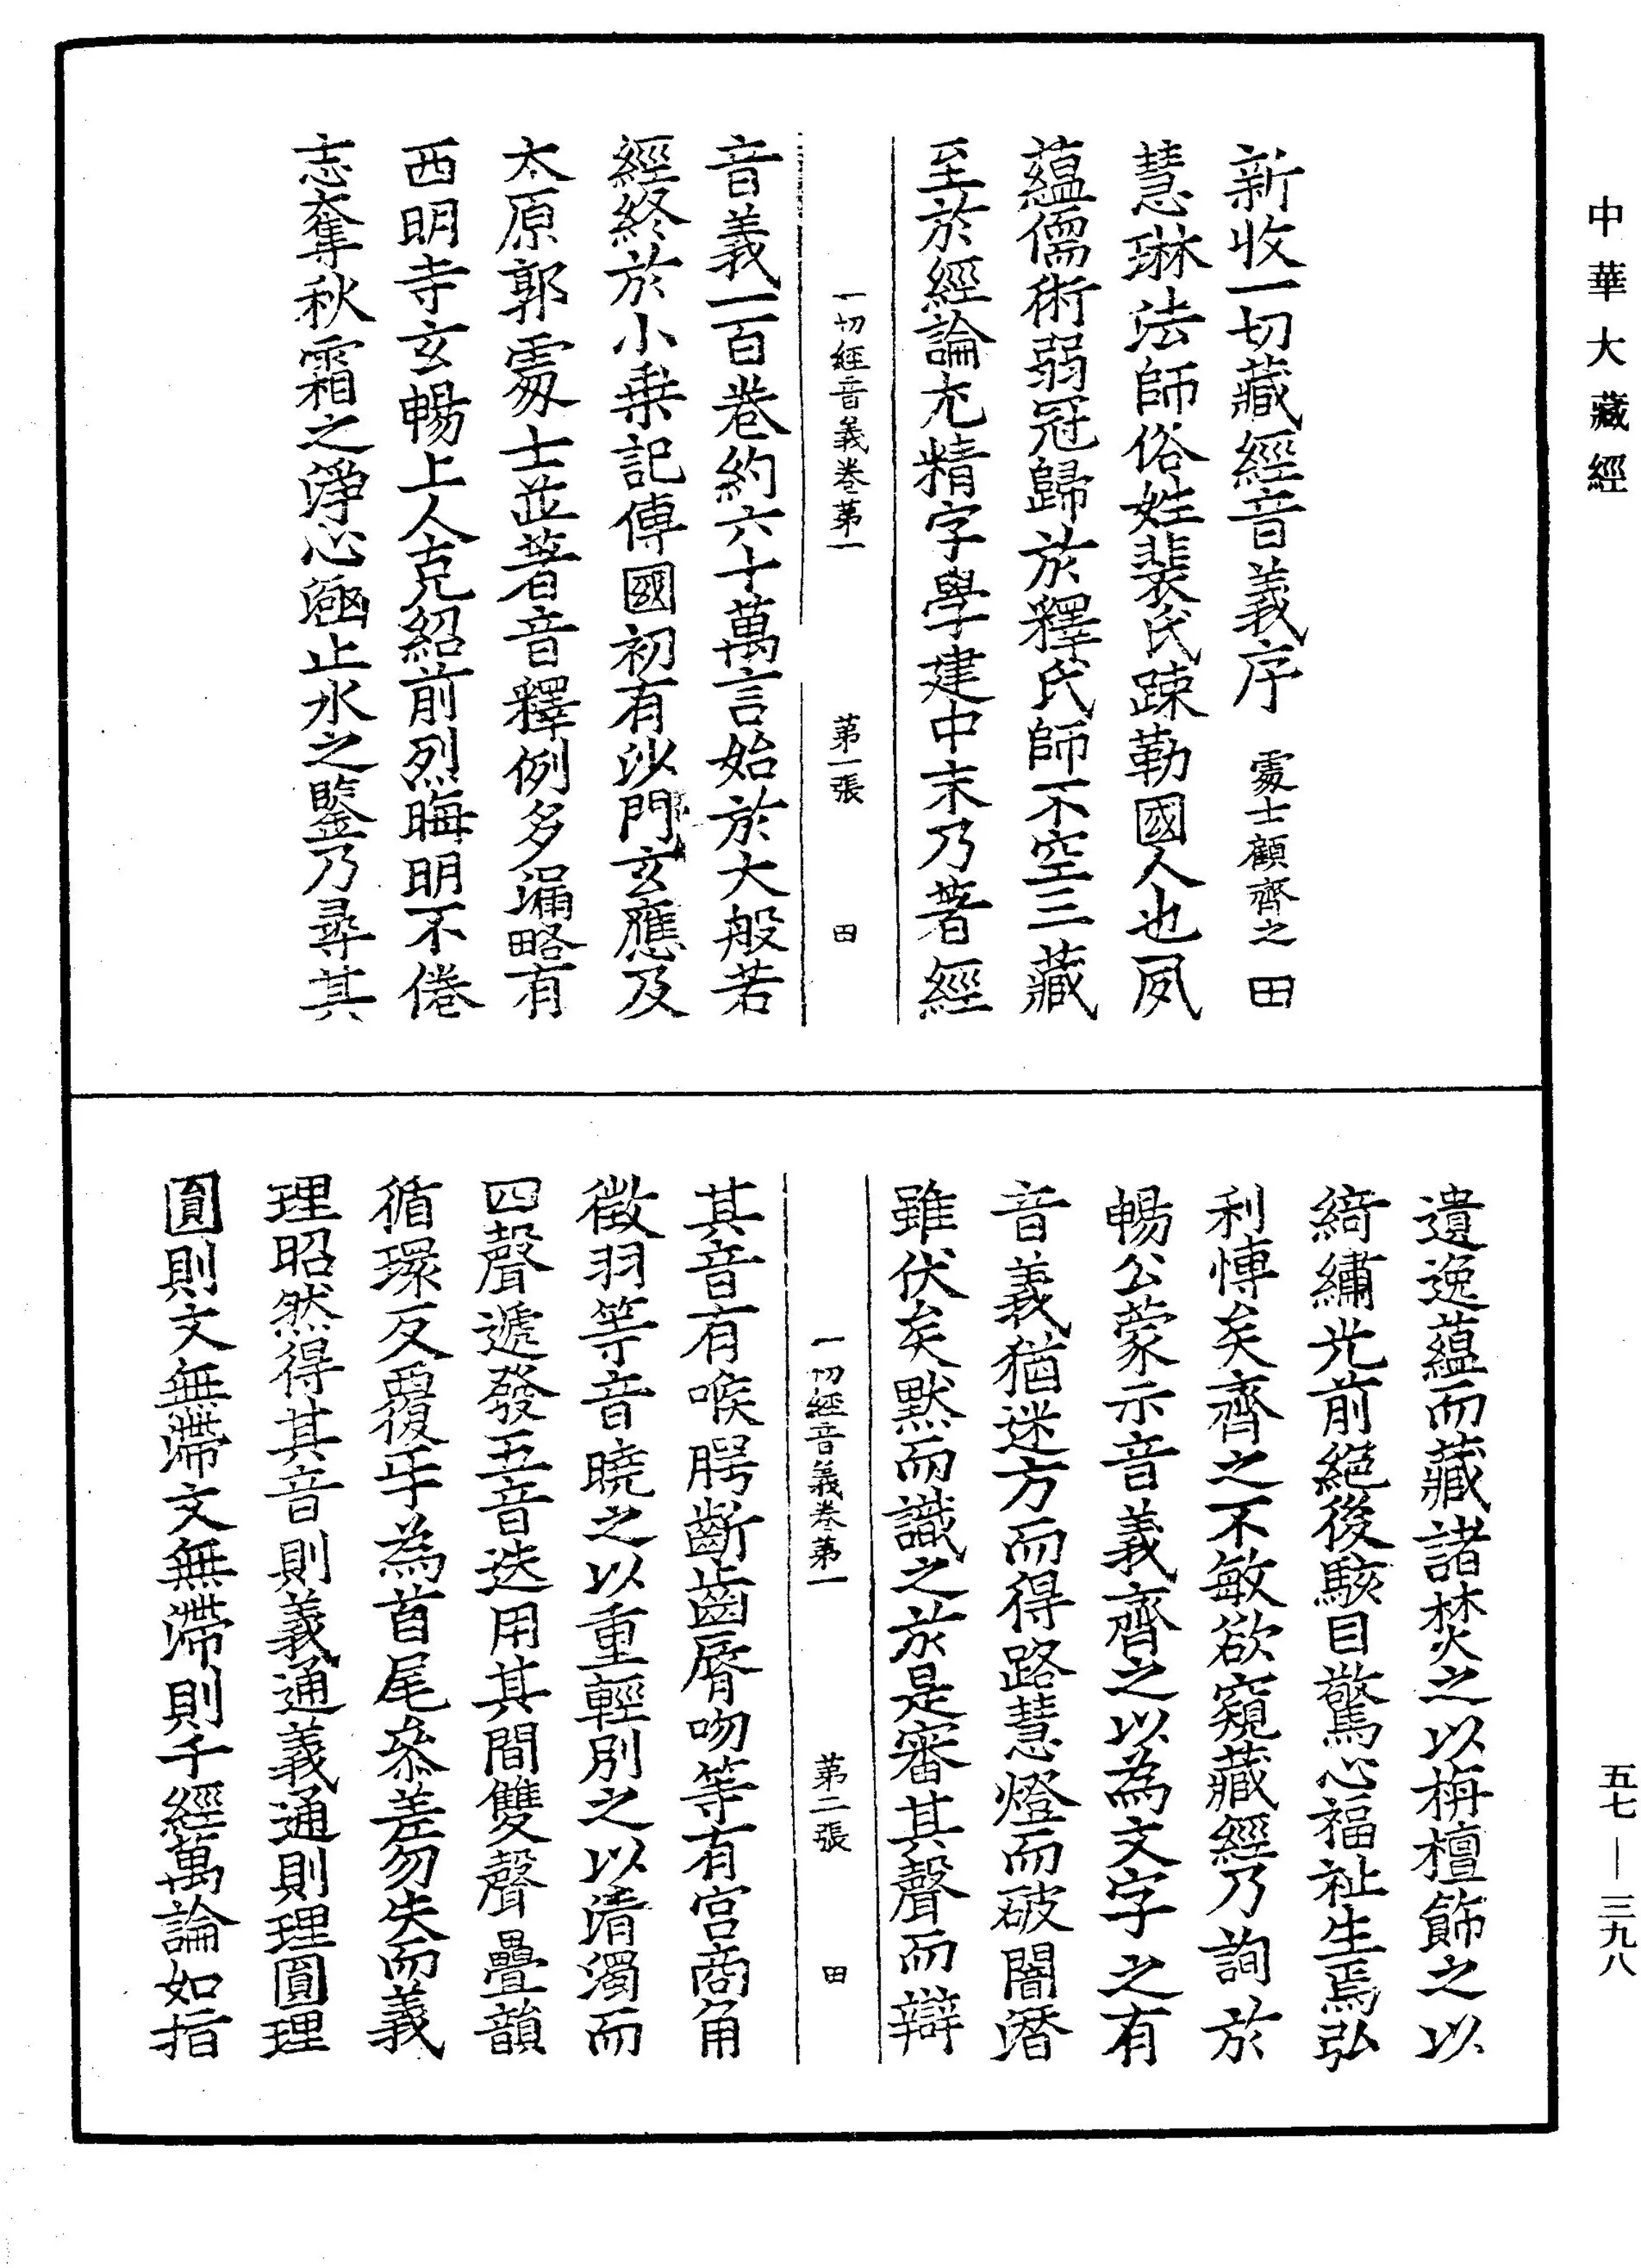 中華大藏經
新收一切藏經音義序　處士顧齊之　田
慧琳法師俗姓裴氏踈勒國人也夙
蘊儒術弱冠歸於釋氏師不空三藏
至於經論尤精字學建中末乃著經
一切經音義卷第一　第一張　田
音義一百卷約六十萬言始於大般若
經終於小乗記傳國初有沙門玄應及
太原郭處士並著音釋例多漏略有
西明寺玄暢上人克紹前烈晦明不倦
志奪秋霜之淨心溢止水之鑒乃尋其
遺逸蘊而藏諸焚之以栴檀飾之以
綺繡光前絕後駭目驚心福祉生焉弘
利博矣齊之不敏欲窺藏經乃詢於
暢公蒙示音義齊之以為文字之有
音義猶迷方而得路慧燈而破闇潛
雖伏矣默而識之於是審其聲而辯
一切經音義卷第一　第二張　田
其音有喉腭齗齒脣吻等有宮商角
徵羽等音曉之以重輕別之以清濁而
四聲遞發五音迭用其間雙聲疊韻
循環反覆乎為首尾叅差勿失而義
理昭然得其音則義通義通則理圓理
圓則文無滯文無滯則千經萬論如指
五七—三九八